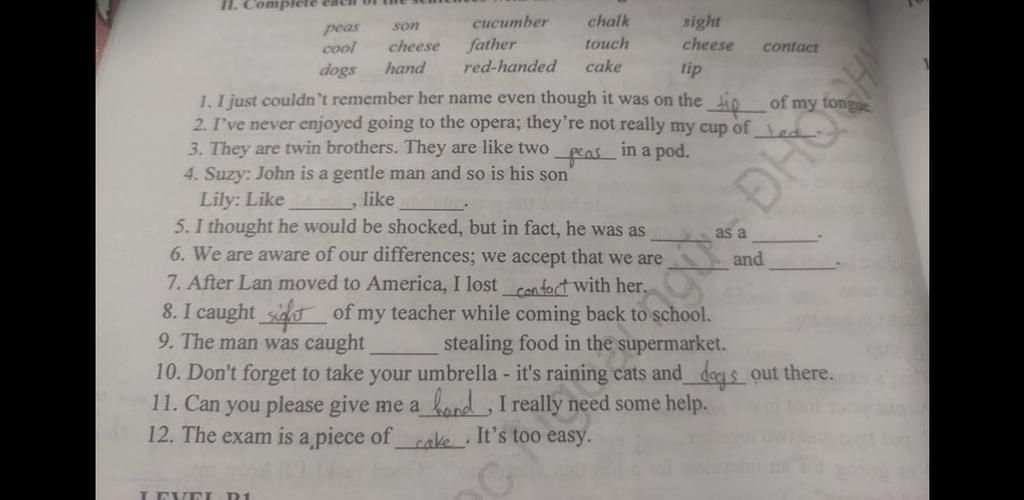 II. Complete each of the sentences
peas son cucumber chalk sight
cool cheese father touch cheese contact
dogs hand red-handed cake tip
1. I just couldn't remember her name even though it was on the tip of my tongue.
2. I've never enjoyed going to the opera; they're not really my cup of .
3. They are twin brothers. They are like two peas in a pod.
4. Suzy: John is a gentle man and so is his son
Lily: Like ______, like ______.
5. I thought he would be shocked, but in fact, he was as ______ as a ______.
6. We are aware of our differences; we accept that we are ______ and ______.
7. After Lan moved to America, I lost contact with her.
8. I caught sight of my teacher while coming back to school.
9. The man was caught ______ stealing food in the supermarket.
10. Don't forget to take your umbrella - it's raining cats and dogs out there.
11. Can you please give me a hand ; I really need some help.
12. The exam is a piece of cake. It's too easy.
LEVEL B1